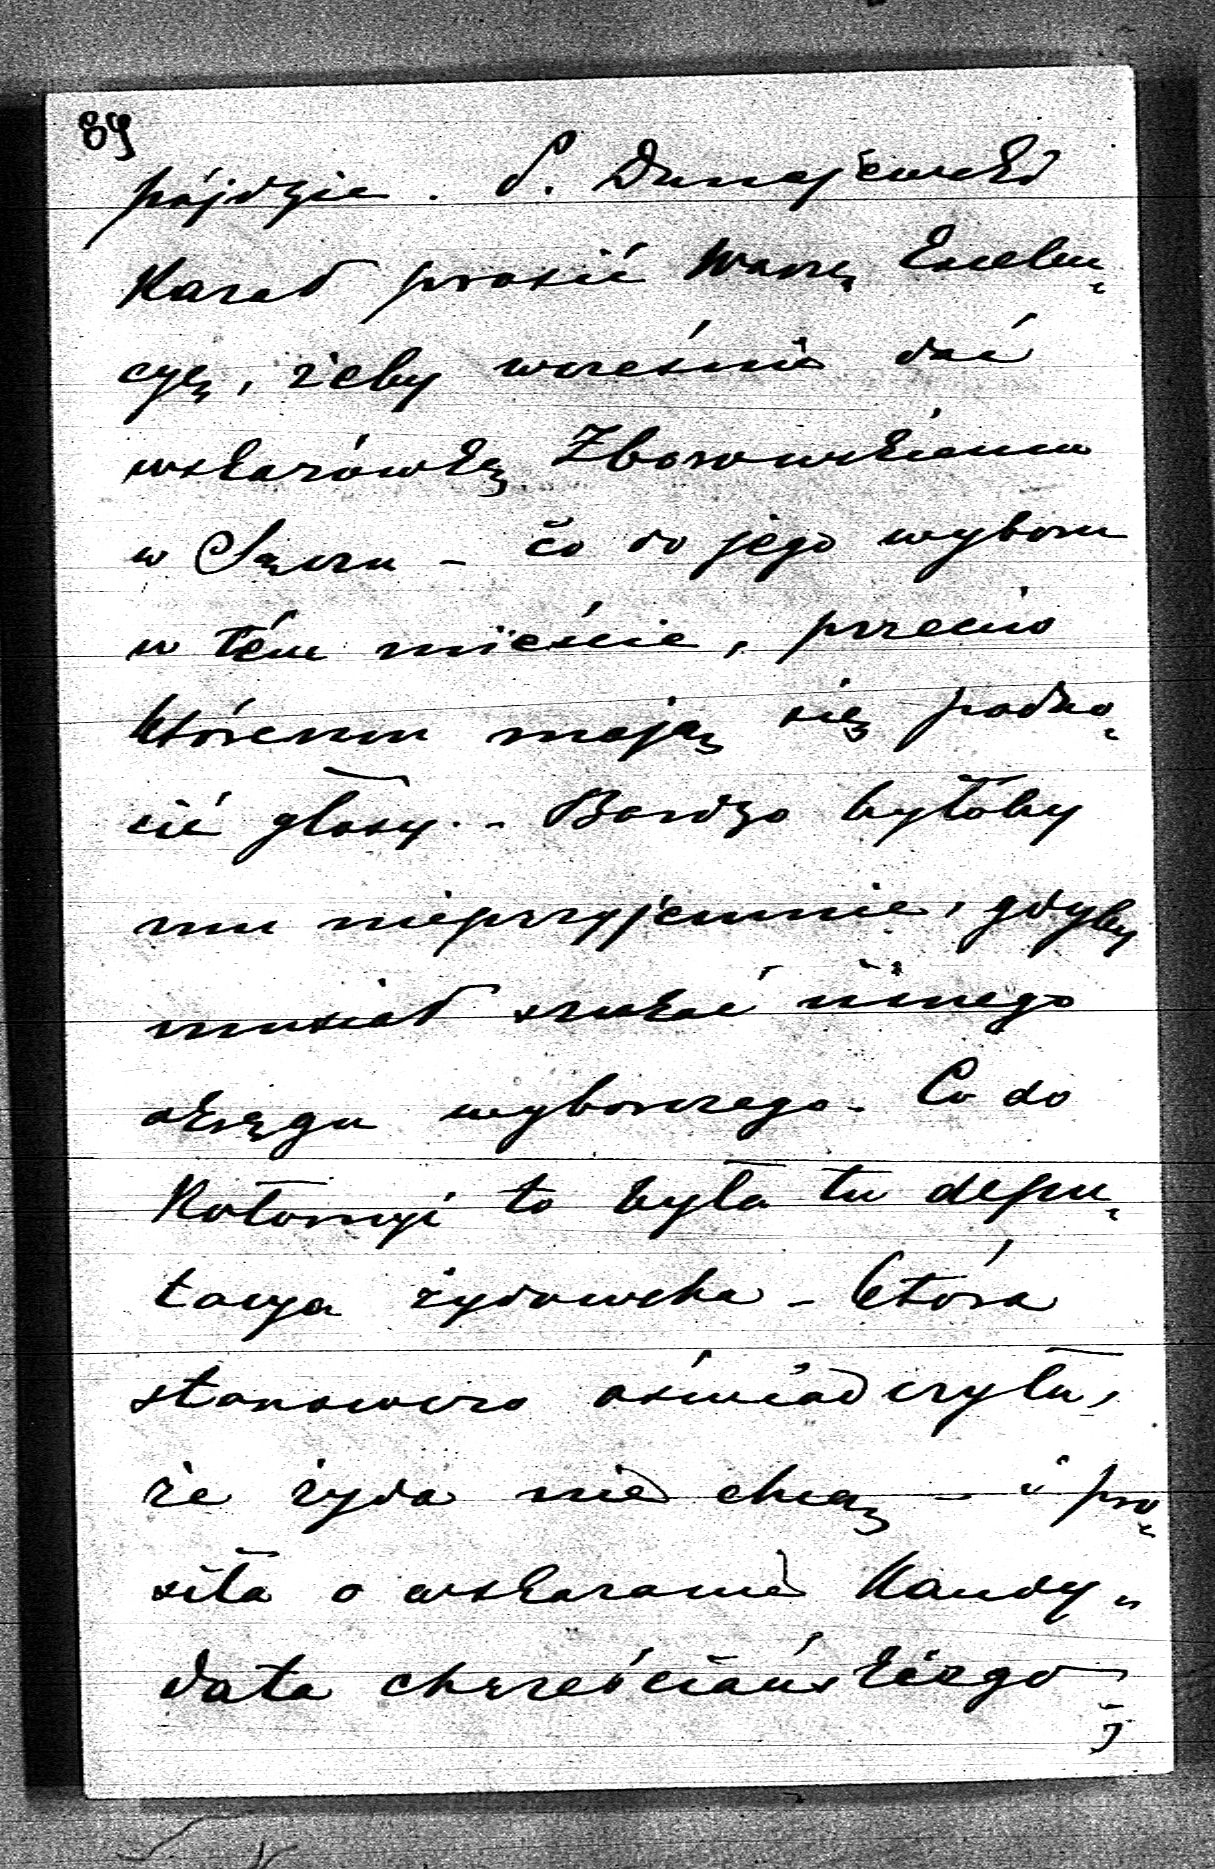 89
pójdzie. P. Dunajewski
Kazał prosić Waszę Excelen„
cyę, żeby wcześnie dać
wskazówkę Zborowskiemu
w Sączu – co do jego wyboru
w tém mieście, przeciw
któremu mają się podno„
sić głosy. – Bardzo byłoby
mu nieprzyjemnie, gdyby
musiał szukać innego
okręgu wyborczego. Co do
Kołomyi to była tu depu„
tacya żydowska – która
stanowczo oświadczyła,
że żyda nie chcą – i pro„
siła o wskazanie Kandy„
data chrześciańskiego